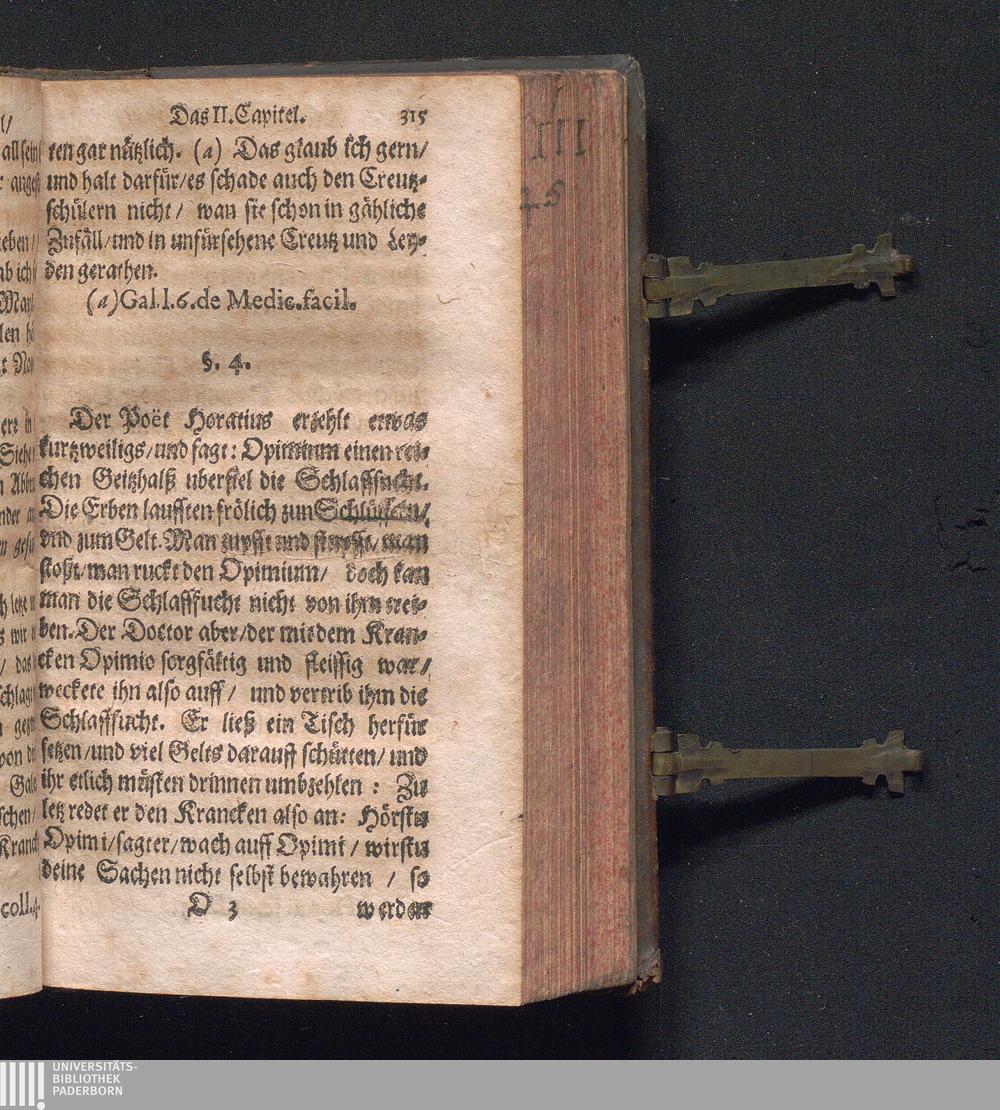 Das II. Capitel. 315
ten gar nützlich. (a) Das glaub ich gern/
und halt darfür/es schade auch den Creutz-
schülern nicht/ wan sie schon in gähliche
Zufäll/und in unfürsehene Creutz und Ley-
den gerathen.
(a) Gal. l. 6. de Medic. facil.
§. 4.
Der Poët Horatius erzehlt etwas
kurtzweiligs/und sagt: Opimium einen rei-
chen Geitzhalß uberfiel die Schlaffsucht.
Die Erben laufften frölich zun Schlüsseln/
vnd zum Gelt. Man zupfft und man
stoßt/man ruckt den Opimium/ doch kan
man die Schlaffsucht nicht von ihm trei-
ben. Der Doctor aber/der mit dem Kran-
cken Opimio sorgfältig und fleissig war/
weckete ihn also auff/ und vertrib ihm die
Schlaffsucht. Er ließ ein Tisch herfür
setzen/und viel Gelts darauff schütten/ und
ihr etlich müsten drinnen umbzehlen : Zu
letz redet er den Krancken also an: Hörstu
Opimi/sagt er/wach auff Opimi/ wirstu
deine Sachen nicht selbst bewahren / so
O 3 werden
l/
all sein
ab ich
coll. 4.
III
25
UNIVERSITÄTS-
BIBLIOTHEK
PADERBORN